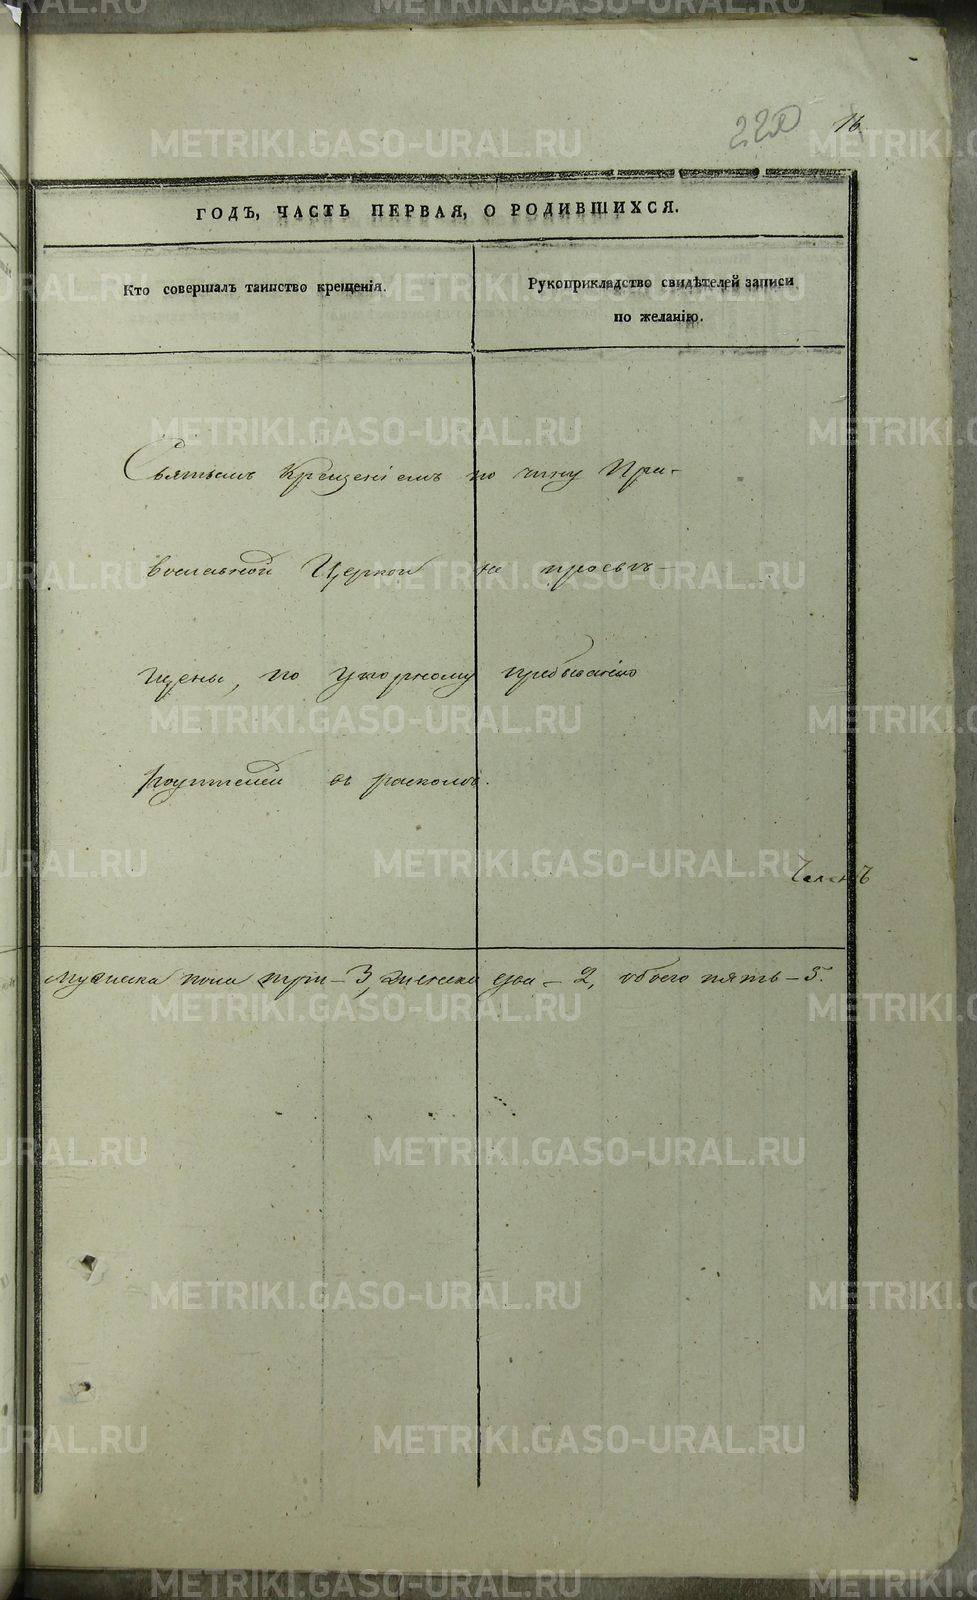 220 16
ГОДЪ, ЧАСТЬ ПЕРВАЯ, О РОДИВШИХСЯ.
Кто совершалъ таинство крещенія.
Рукоприкладство свидѣтелей записи
по желанію.
Святымъ Крещеніемъ по чину Пра-
вославной Церкви не просвѣ-
щены, по упорному пребыванію
родителей въ расколѣ.
Мужеска пола три – 3, женска два – 2, обоего пять – 5.
METRIKI.GASO-URAL.RU